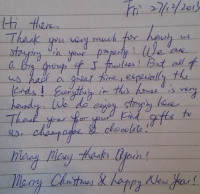 Fri: 27/12/2013
Hi there,
Thank you very much for having us
staying in your property! We are
a big group of 5 families! But all of
us had a great time, especially the
kids! Everything in this house is very
handy. We do enjoy staying here.
Thank you for your kind gifts to
us: champagne & chocolate!
Merry Merry thanks Again!
Merry Christmas & happy New Year!